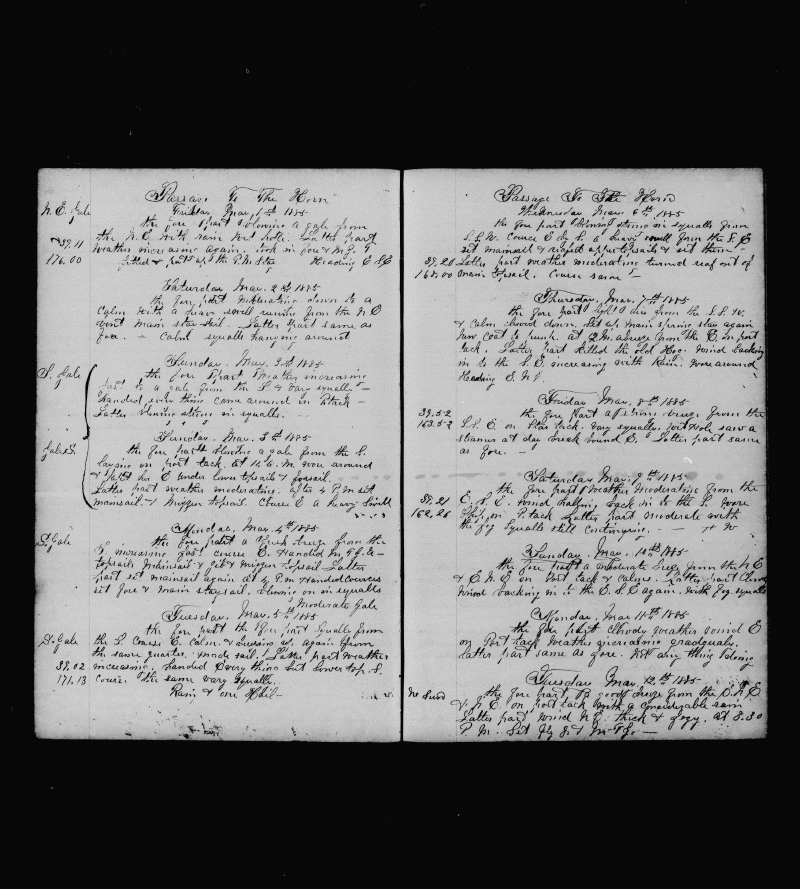 Passage To The Horn
N. E. Gale
Friday May 1st 1885
the fore part blowing a gale from
the N. E. with rain and Latter part
weather increasing again. took in fore & M. T. G
39.11
176.00
the P.M. Heading E S E
Saturday May 2nd 1885
the fore part Moderating down to a
calm with a heavy swell running from the N E
bent main stay sail. Latter part same as
fore. - Calm squalls hanging around
Sunday May 3rd 1885
S. Gale
the fore part Weather increasing
fast to a gale from the S. & very squally -
handed every thing came around on P. tack -
Latter blowing strong in squalls. -
Sunday May 3d 1885
Gale S.
the fore part blowing a gale from the S.
laying on port tack. at 11. A. M. wore around
& put her E under lower topsails & foresail.
Latter part weather moderating. after 4 P.M set
mainsail & Mizzen topsail. Course E a heavy swell
Monday May 4th 1885
S. Gale
the fore part a fresh breeze from the
S. increasing fast. course E. Handed M. T. G. &
topsails Mainsail & Jib & mizzen topsail. Latter
part set mainsail again at 4 P. M. Handed Courses
set fore & main staysail. blowing on in squalls
Moderate Gale
Tuesday May. 5th 1885
the fore part the fore part Squally from
S. Gale
the S. Course E. Calm. & again from
the same quarter. made sail. Latter part weather
39.02
increasing. handed every thing but lower top. S.
171.13
course the same very squally.
Rain & one Hail -
Passage To The Horn
Wednesday May. 6th 1885
the fore part blowing strong in squalls from
S. S. W. Course E & S. a heavy swell from the S. E
set mainsail & reefed upper topsails & set them -
39.20
Latter part weather moderating turned reef out of
168.00
main topsail. Course same -
Thursday May. 7th 1885
the fore part light air from the S. S. W.
& calm clewed down. Set up main spring stay again
new coat to pump. at P.M. a breeze from the E. on port
tack. Latter part killed the old Hog. Wind backing
in to the S. E. increasing with Rain. Wore around
Heading E. N. E
Friday May 8th 1885
39.52
the fore part a strong breeze from the
163.52
S. S. E on Star tack. very squally. saw a
steamer at day break bound E. Latter part same
as fore. -
Saturday May. 9th 1885
the fore part Weather moderating from the
39.21
E. S. E. wind hauling back in to the S. Wore
162.26
Ship on P. tack. Latter part moderate with
the fog Squalls still continuing. -
Sunday. May. 10th 1885
the fore part a moderate breeze from the N E
& E. N. E on Port tack & calms. Latter part Cloudy
Wind backing in to the E. S. E again. With fog squalls
Monday May 11th 1885
the fore part Cloudy weather wind E
on Port tack weather increasing gradually.
latter part same as fore. Not any thing doing
Tuesday May 12th 1885
the fore part a good breeze from the E. N. E
& N. E. on port tack with a considerable rain
Latter part Wind N E. thick & fogy. at 3.30
P. M. Set